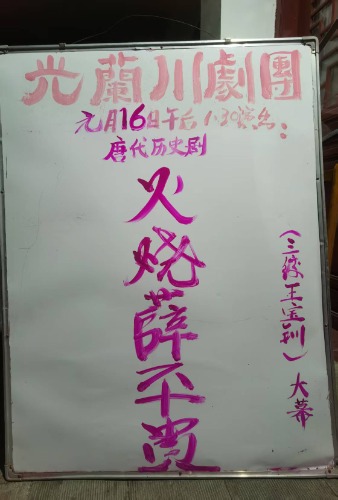 光蘭川劇團
元月16日午后1:30演出:
唐代历史剧
火烧薛平贵
(三王宝钏)大幕